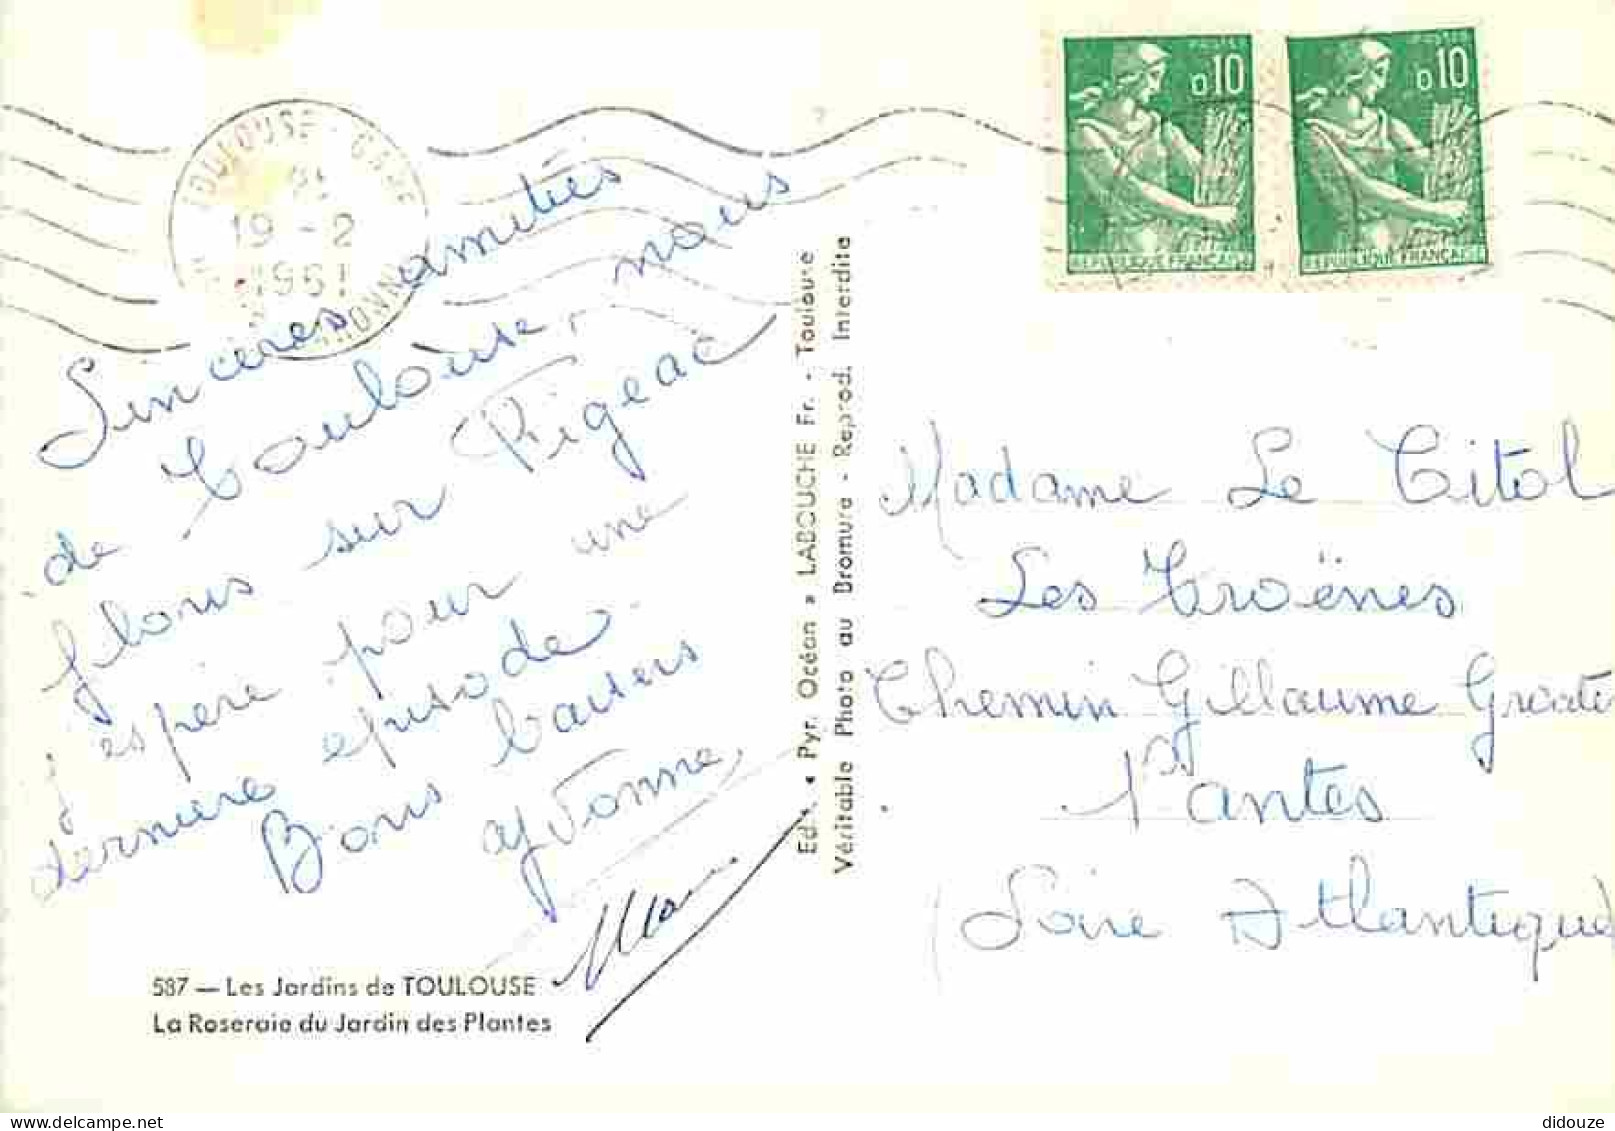 TOULOUSE - GARE
19 - 2
1961
POSTES
0,10
REPUBLIQUE FRANÇAISE
POSTES
0,10
REPUBLIQUE FRANÇAISE
Sincères amitiés
de Toulouse, nous
filons sur Figeac
j'espère pour une
dernière épisode
Bons baisers
Yvonne
587 — Les Jardins de TOULOUSE
La Roseraie du Jardin des Plantes
Edit. « Pyr. Océan » LABOUCHE Fr. - Toulouse
Véritable Photo au Bromure - Reprod. Interdite
Madame Le Titol
Les Troënes
Chemin Gillaume
Nantes
(Loire Atlantique)
didouze